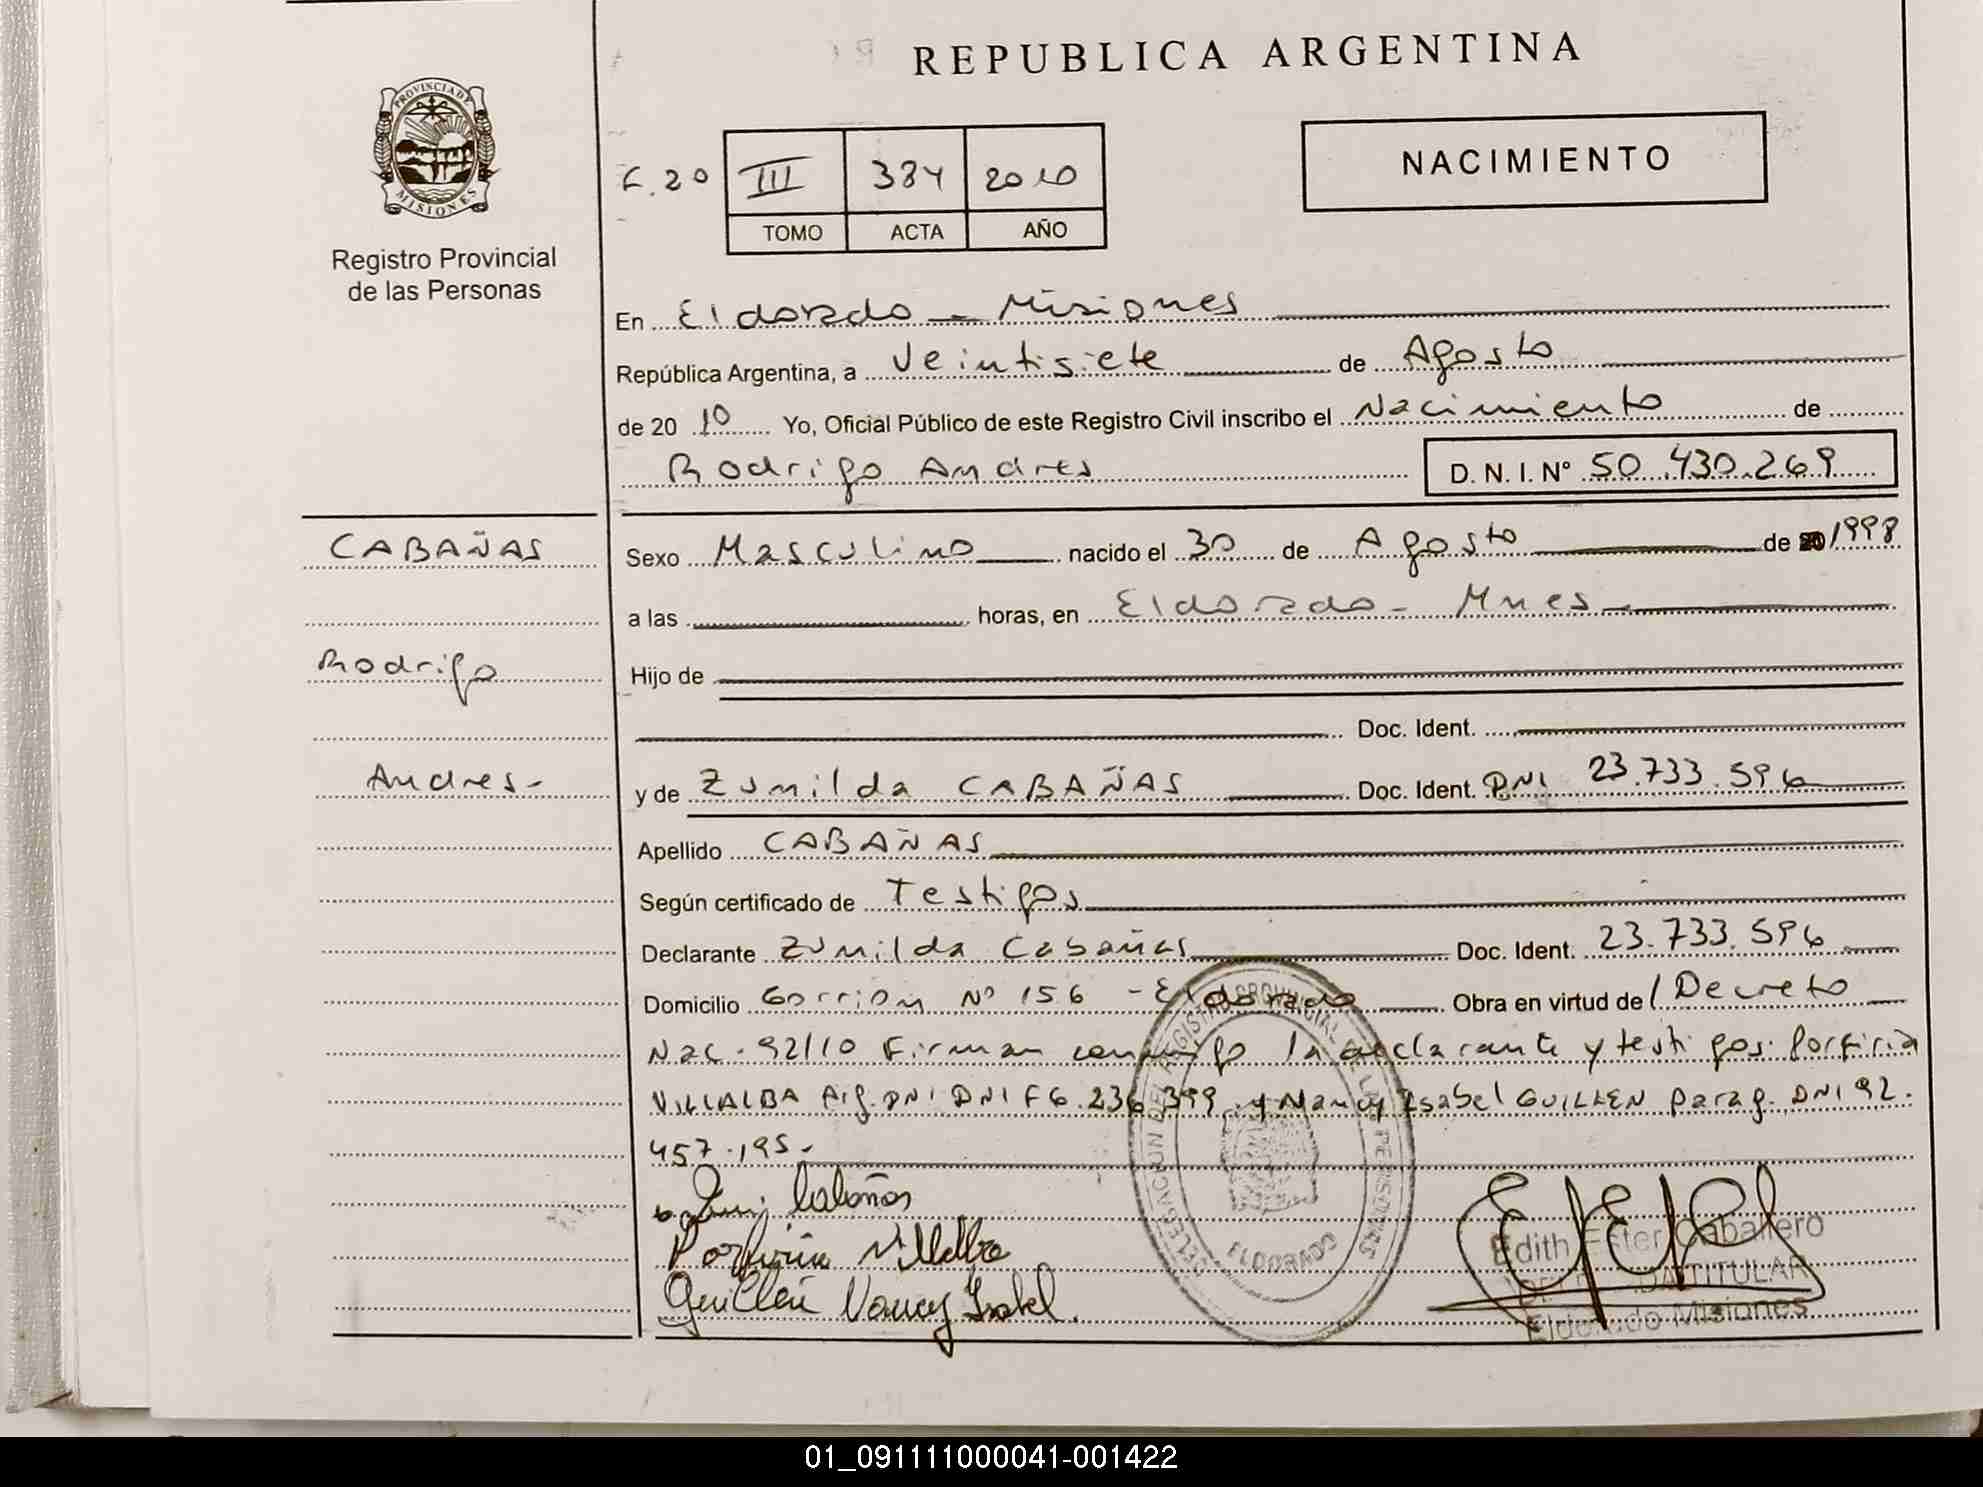 REPUBLICA ARGENTINA
PROVINCIA DE
MISIONES
Registro Provincial
de las Personas
F. 20 III 384 2010
TOMO ACTA AÑO
NACIMIENTO
En Eldorado - Misiones
República Argentina, a Veintisiete de Agosto
de 20 10 Yo, Oficial Público de este Registro Civil inscribo el Nacimiento de
Rodrigo Andres D. N. I. N° 50.430.269
CABAÑAS
Rodrigo
Andres-
Sexo Masculino nacido el 30 de Agosto de 20 1998
a las horas, en Eldorado - Mnes -
Hijo de
Doc. Ident.
y de Zunilda CABAÑAS Doc. Ident. DNI 23.733.596
Apellido CABAÑAS
Según certificado de Testigos
Declarante Zunilda Cabañas Doc. Ident. 23.733.596
Domicilio Gorrion Nº 156 - Eldorado Obra en virtud de / Decreto
Nac. 92/10 Firman conmigo la declarante y testigos: Porfiria
VILLALBA Arg. DNI DNI F6.236.399 y Nancy Isabel GUILLEN Parag. DNI 92.
457.195.-
Zuni Cabañas
Porfiria Villalba
Guillén Nancy Isabel.
DELEGACION DEL REGISTRO PROVINCIAL DE LAS PERSONAS
ELDORADO
Edith Ester Caballero
TITULAR
Eldorado Misiones
01_091111000041-001422